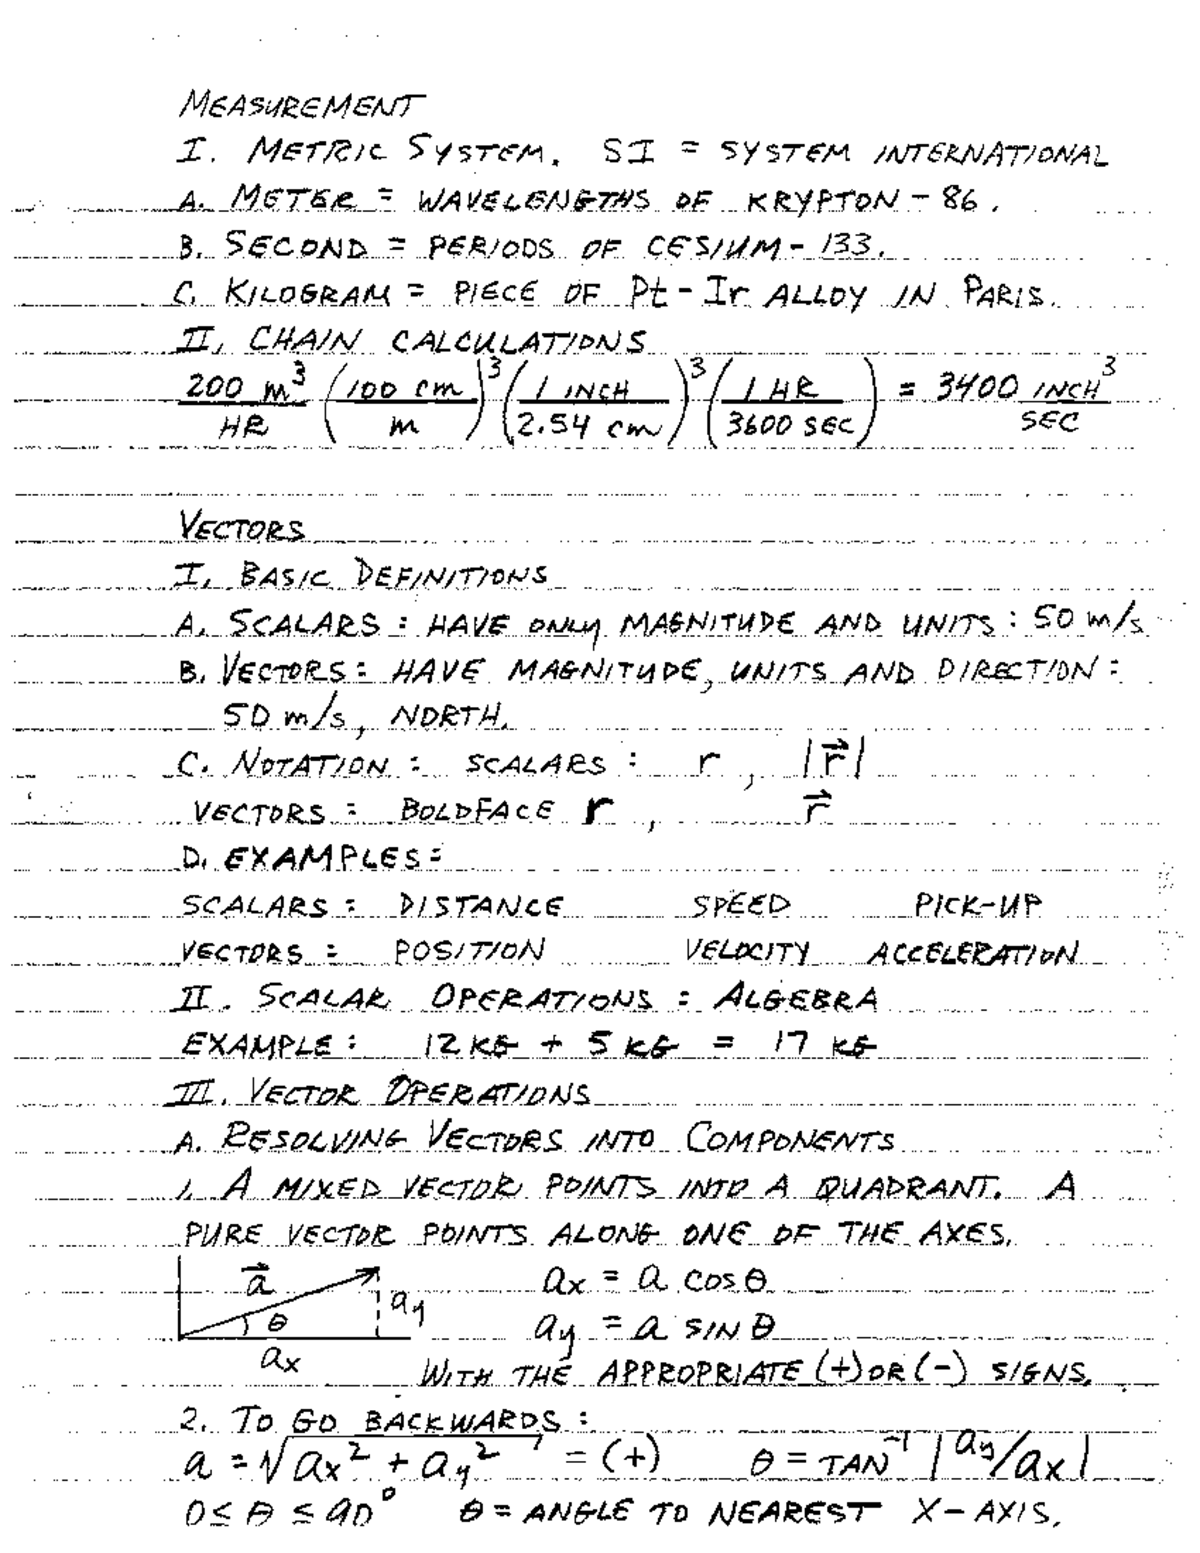 MEASUREMENT
I. METRIC SYSTEM. SI = SYSTEM INTERNATIONAL
A. METER = WAVELENGTHS OF KRYPTON-86.
B. SECOND = PERIODS OF CESIUM-133.
C. KILOGRAM = PIECE OF Pt-Ir ALLOY IN PARIS.
II. CHAIN CALCULATIONS
200 m³/HR (100 cm/m)³ (1 INCH/2.54 cm)³ (1 HR/3600 SEC) = 3400 INCH³/SEC
VECTORS
I. BASIC DEFINITIONS
A. SCALARS: HAVE ONLY MAGNITUDE AND UNITS: 50 m/s
B. VECTORS: HAVE MAGNITUDE, UNITS AND DIRECTION:
50 m/s, NORTH.
C. NOTATION: SCALARS: r, |r⃗|
VECTORS: BOLDFACE r, r⃗
D. EXAMPLES:
SCALARS: DISTANCE SPEED PICK-UP
VECTORS: POSITION VELOCITY ACCELERATION
II. SCALAR OPERATIONS: ALGEBRA
EXAMPLE: 12 KG + 5 KG = 17 KG
III. VECTOR OPERATIONS
A. RESOLVING VECTORS INTO COMPONENTS
1. A MIXED VECTOR POINTS INTO A QUADRANT. A
PURE VECTOR POINTS ALONG ONE OF THE AXES.
a⃗ ax = a cos θ
θ ay ay = a SIN θ
ax WITH THE APPROPRIATE (+) OR (-) SIGNS.
2. TO GO BACKWARDS:
a = √(ax² + ay²) = (+) θ = TAN⁻¹ |ay/ax|
0 ≤ θ ≤ 90° θ = ANGLE TO NEAREST X-AXIS.